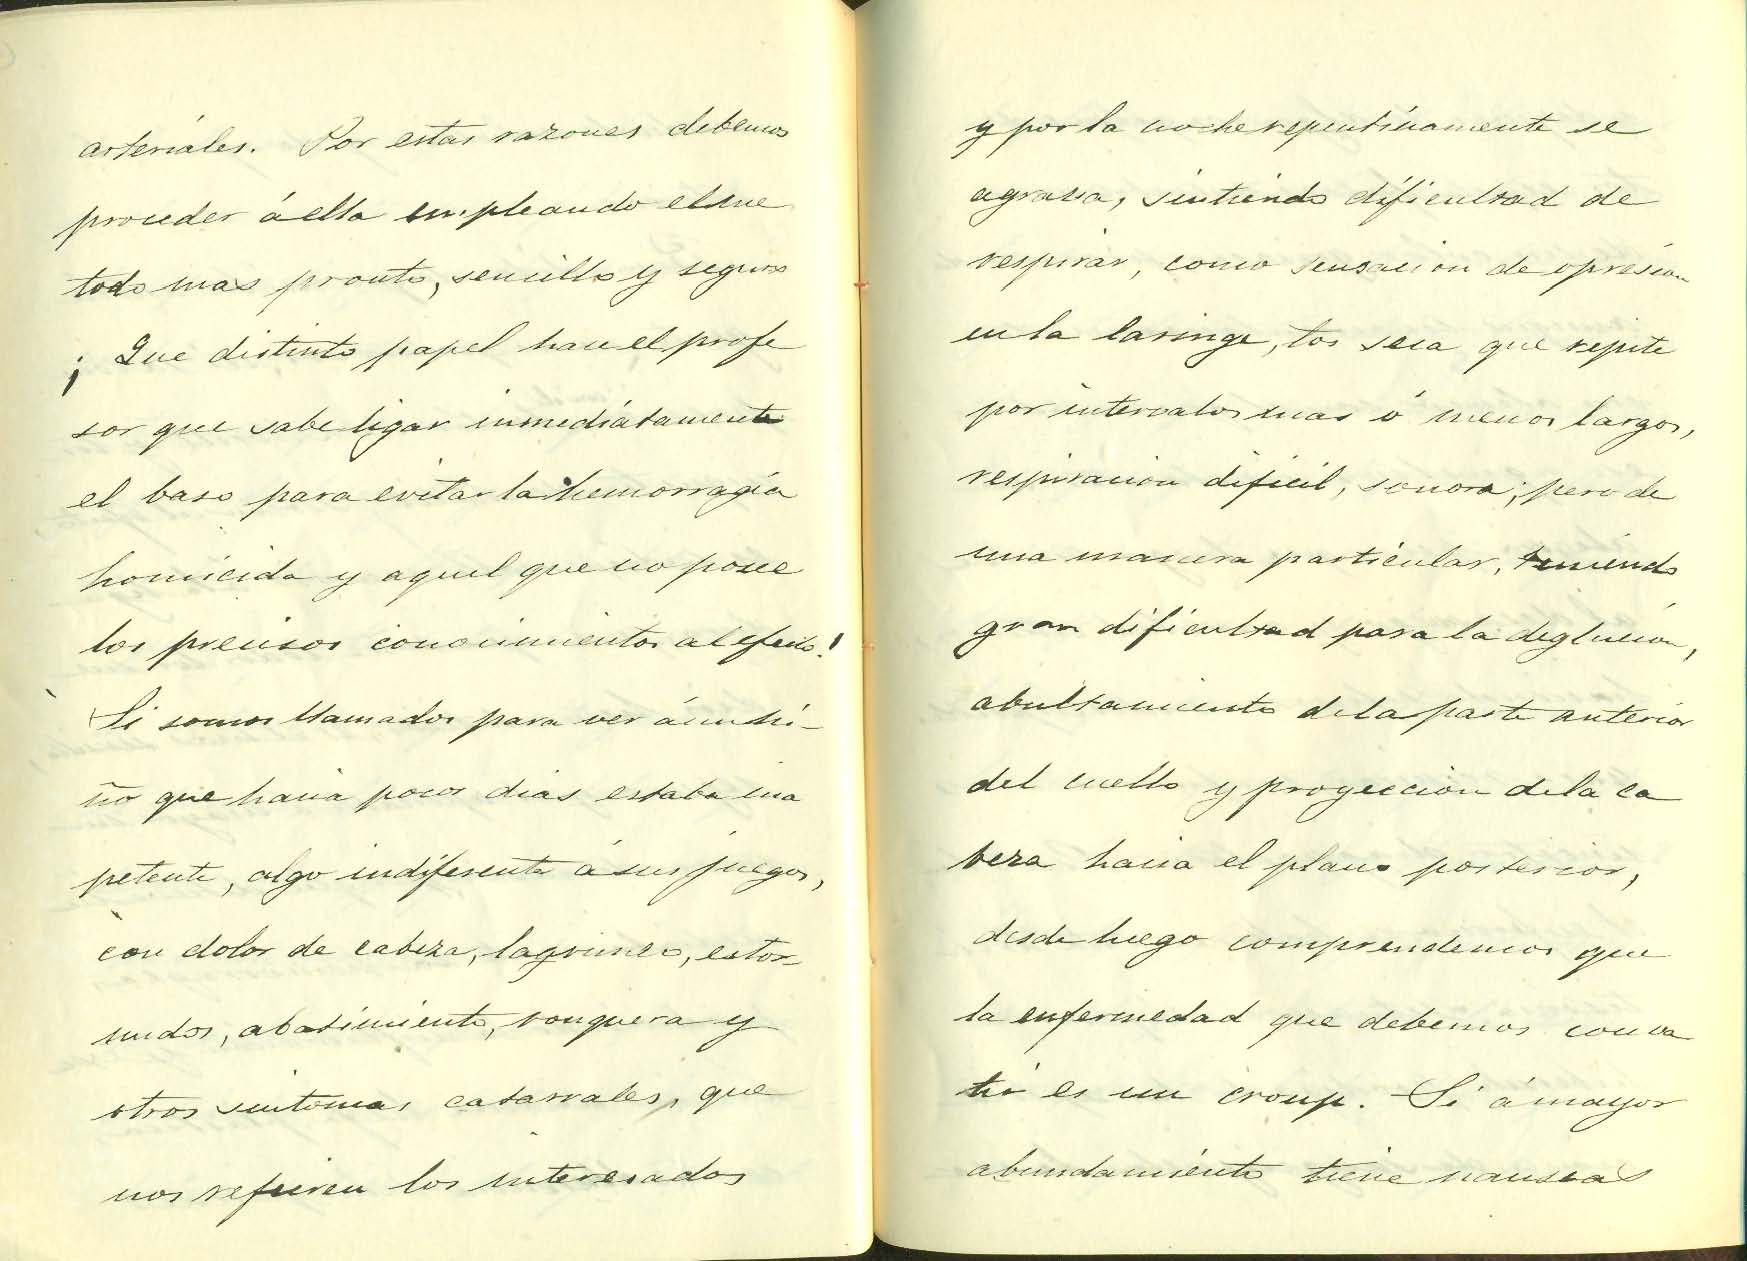 arteriales. Por estas razones debemos
proceder á ella empleando el me
todo mas pronto, sencillo y seguro
¡ Que distinto papel hace el profe
sor que sabe ligar inmediatamente
el baso para evitar la hemorragia
homicida y aquel que no posee
los precisos conocimientos al efecto!
Si somos llamados para ver á un ni-
ño que hacia pocos dias estaba ina
petente, algo indiferente á sus juegos,
con dolor de cabeza, lagrimeo, estor-
nudos, abatimiento, ronquera y
otros sintomas catarrales, que
nos refieren los interesados
y por la noche repentinamente se
agrava, sintiendo dificultad de
respirar, como sensacion de opresion
en la laringe, tos seca que repite
por intervalos mas ó menos largos,
respiracion dificil, sonora; pero de
una manera particular, teniendo
gran dificultad para la deglucion,
abultamiento de la parte anterior
del cuello y proyeccion de la ca
beza hacia el plano posterior,
desde luego comprendemos que
la enfermedad que debemos conva
tir es un croup. Si á mayor
abundamiento tiene nauseas